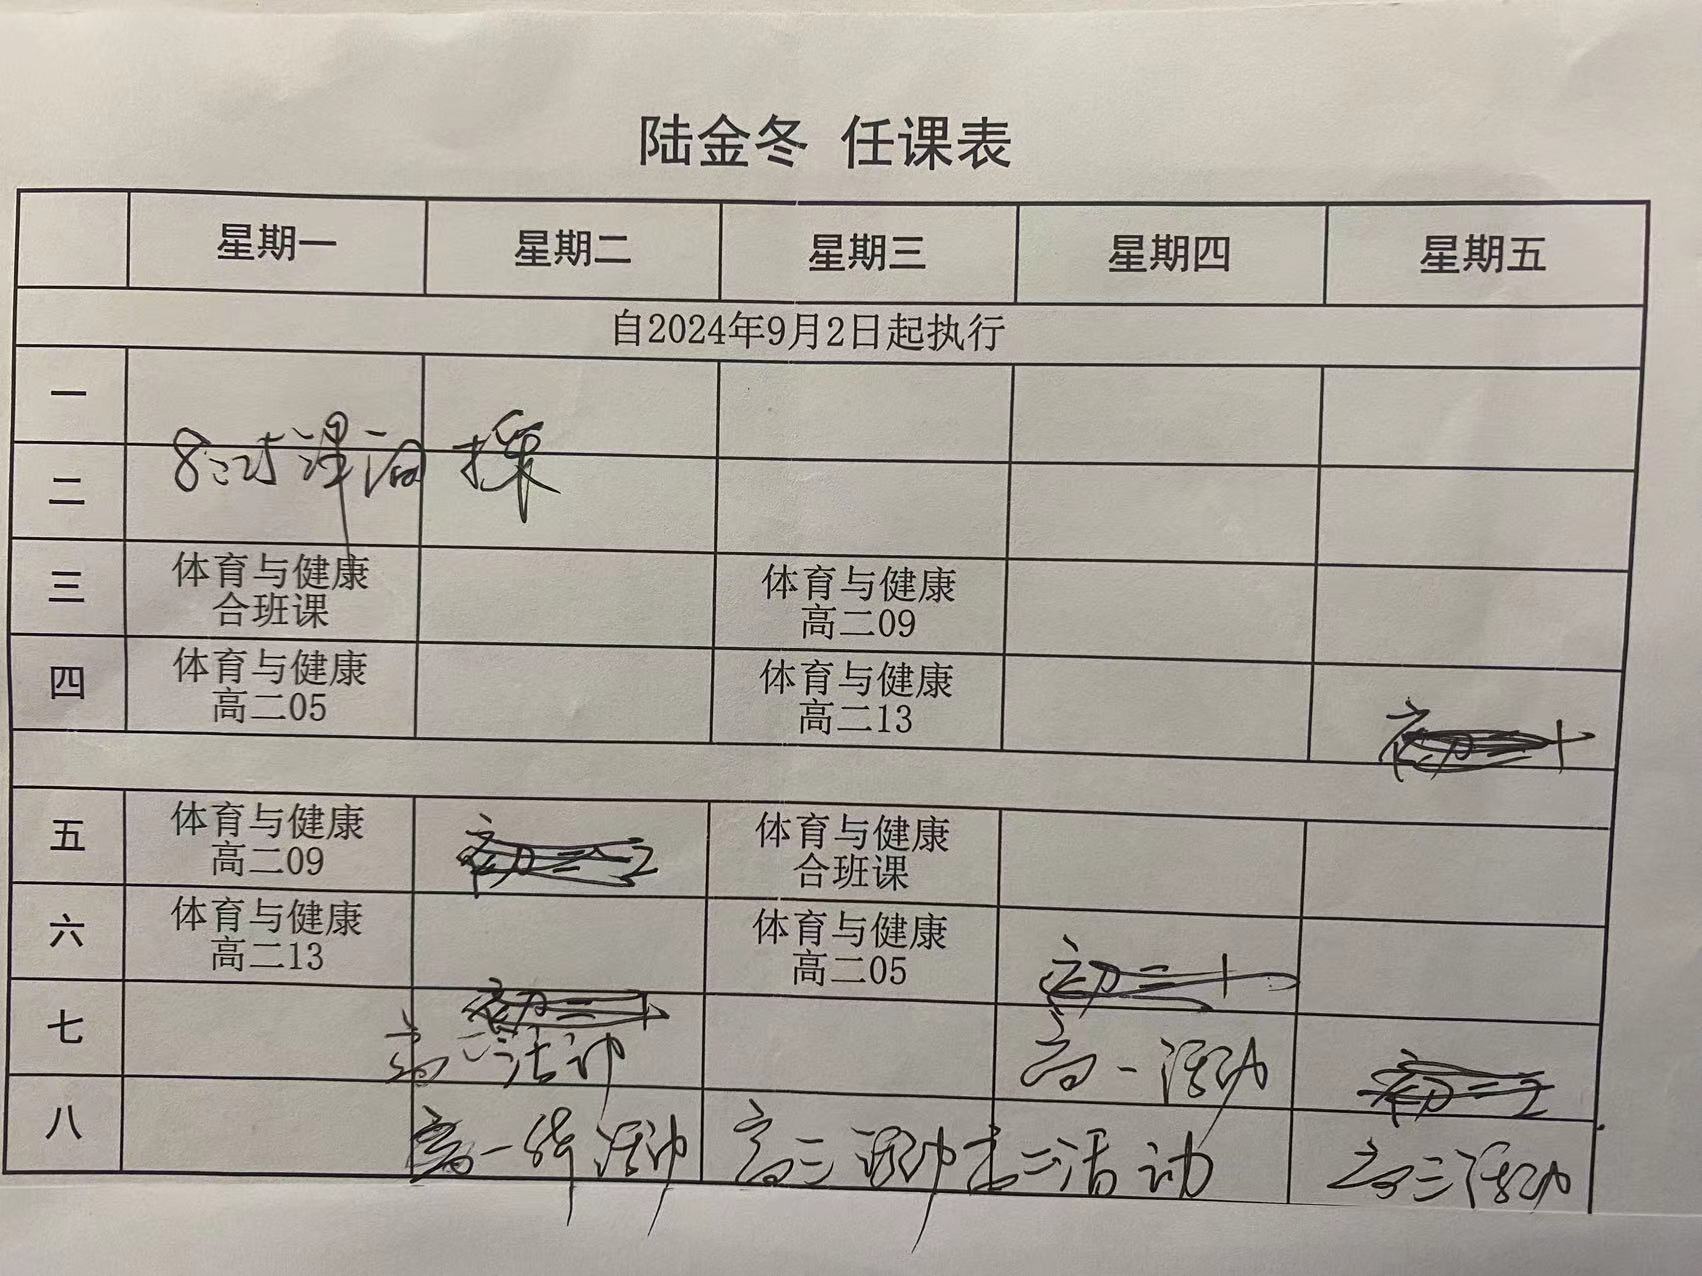 陆金冬 任课表
星期一 星期二 星期三 星期四 星期五
自2024年9月2日起执行
一
二
课 操
三 体育与健康 合班课 体育与健康 高二09
四 体育与健康 高二05 体育与健康 高二13
五 体育与健康 高二09 体育与健康 合班课
六 体育与健康 高二13 体育与健康 高二05
七 高二活动 高一活动
八 高一 活动 高三活动 高二活动 高三活动